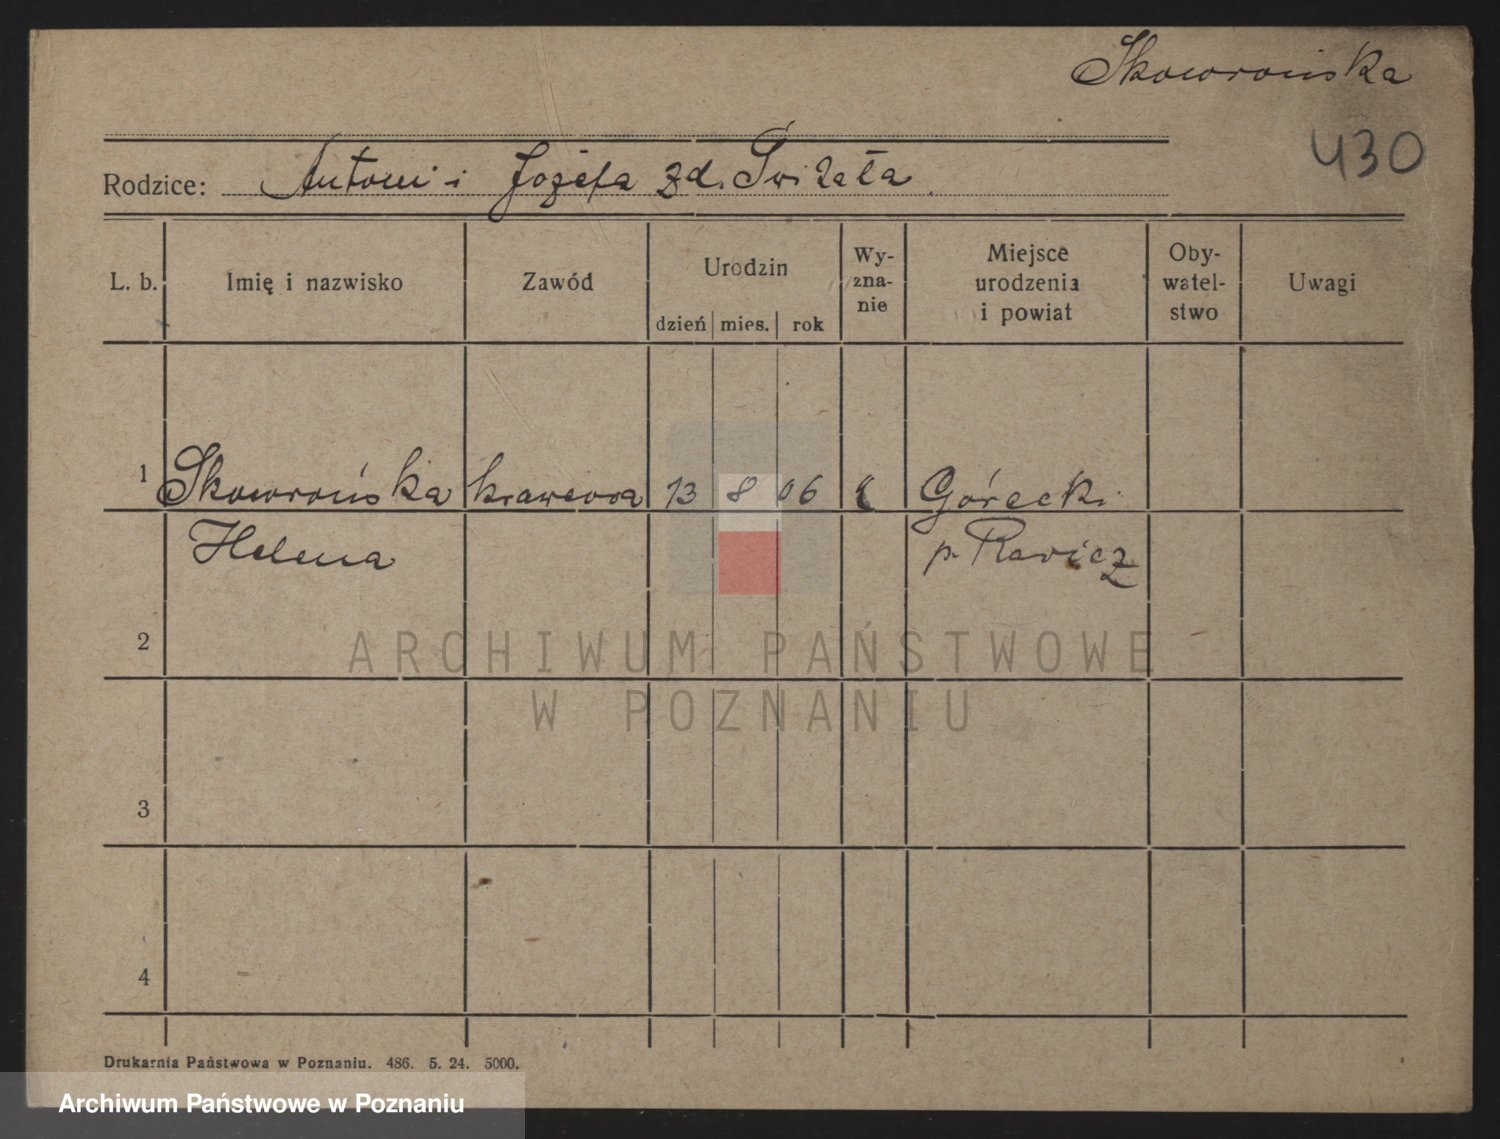 Skowrońska
430
Rodzice: Antoni i Józefa zd. Świtała
L. b. Imię i nazwisko Zawód Urodzin dzień mies. rok Wy-zna-nie Miejsce urodzenia i powiat Oby-watel-stwo Uwagi
1 Skowrońska krawcowa 13 8 06 Górecki
Helena p. Rawicz
2
ARCHIWUM PAŃSTWOWE
W POZNANIU
3
4
Drukarnia Państwowa w Poznaniu. 486. 5. 24. 5000.
Archiwum Państwowe w Poznaniu